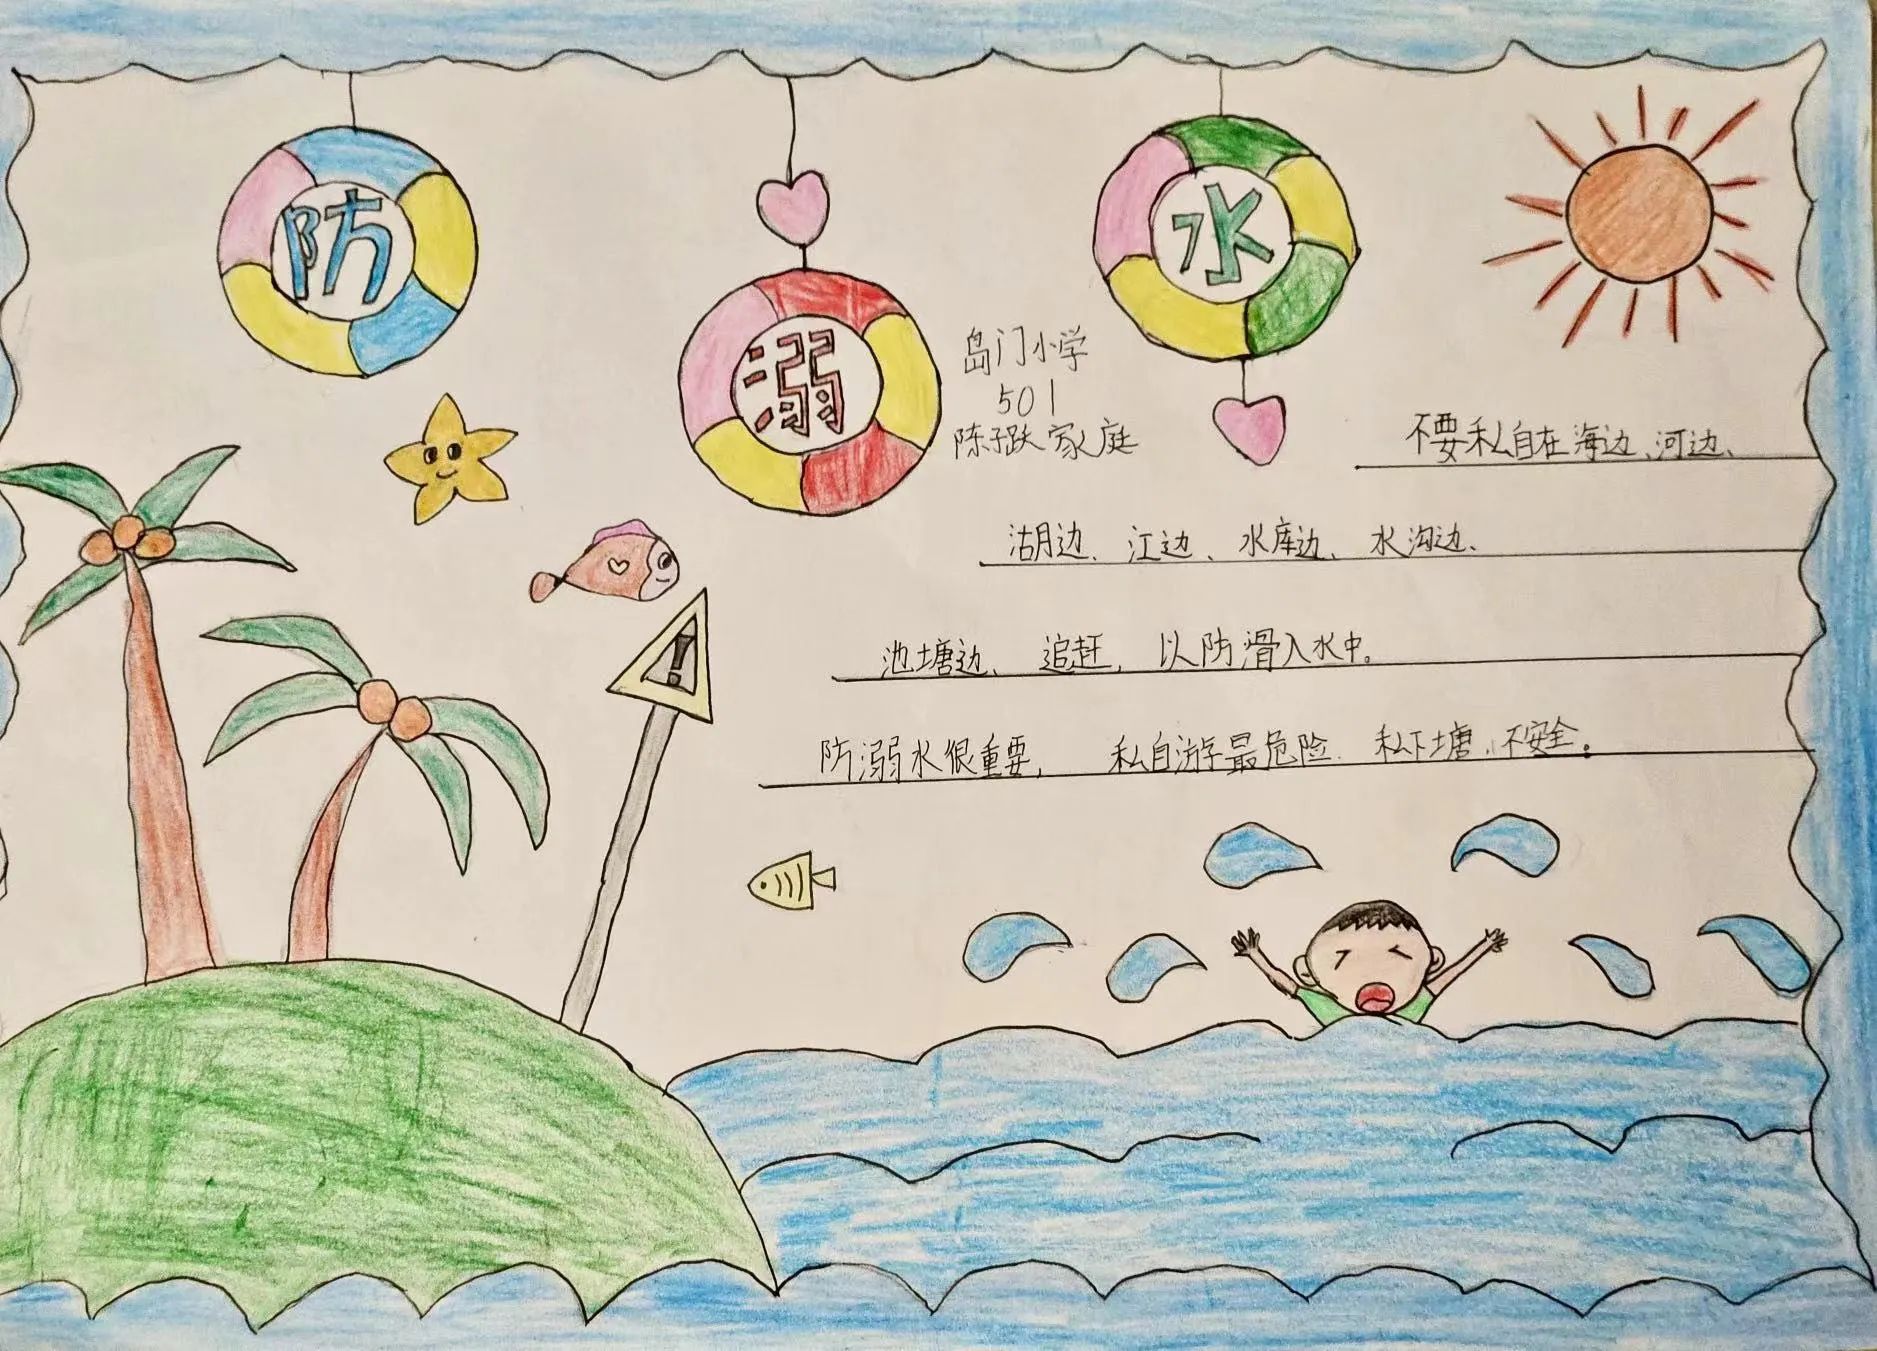 防溺水
岛门小学
501
陈子跃家庭
不要私自在海边、河边、
湖边、江边、水库边、水沟边、
池塘边、追赶,以防滑入水中。
防溺水很重要,私自游学最危险.私下塘,不安全。
!